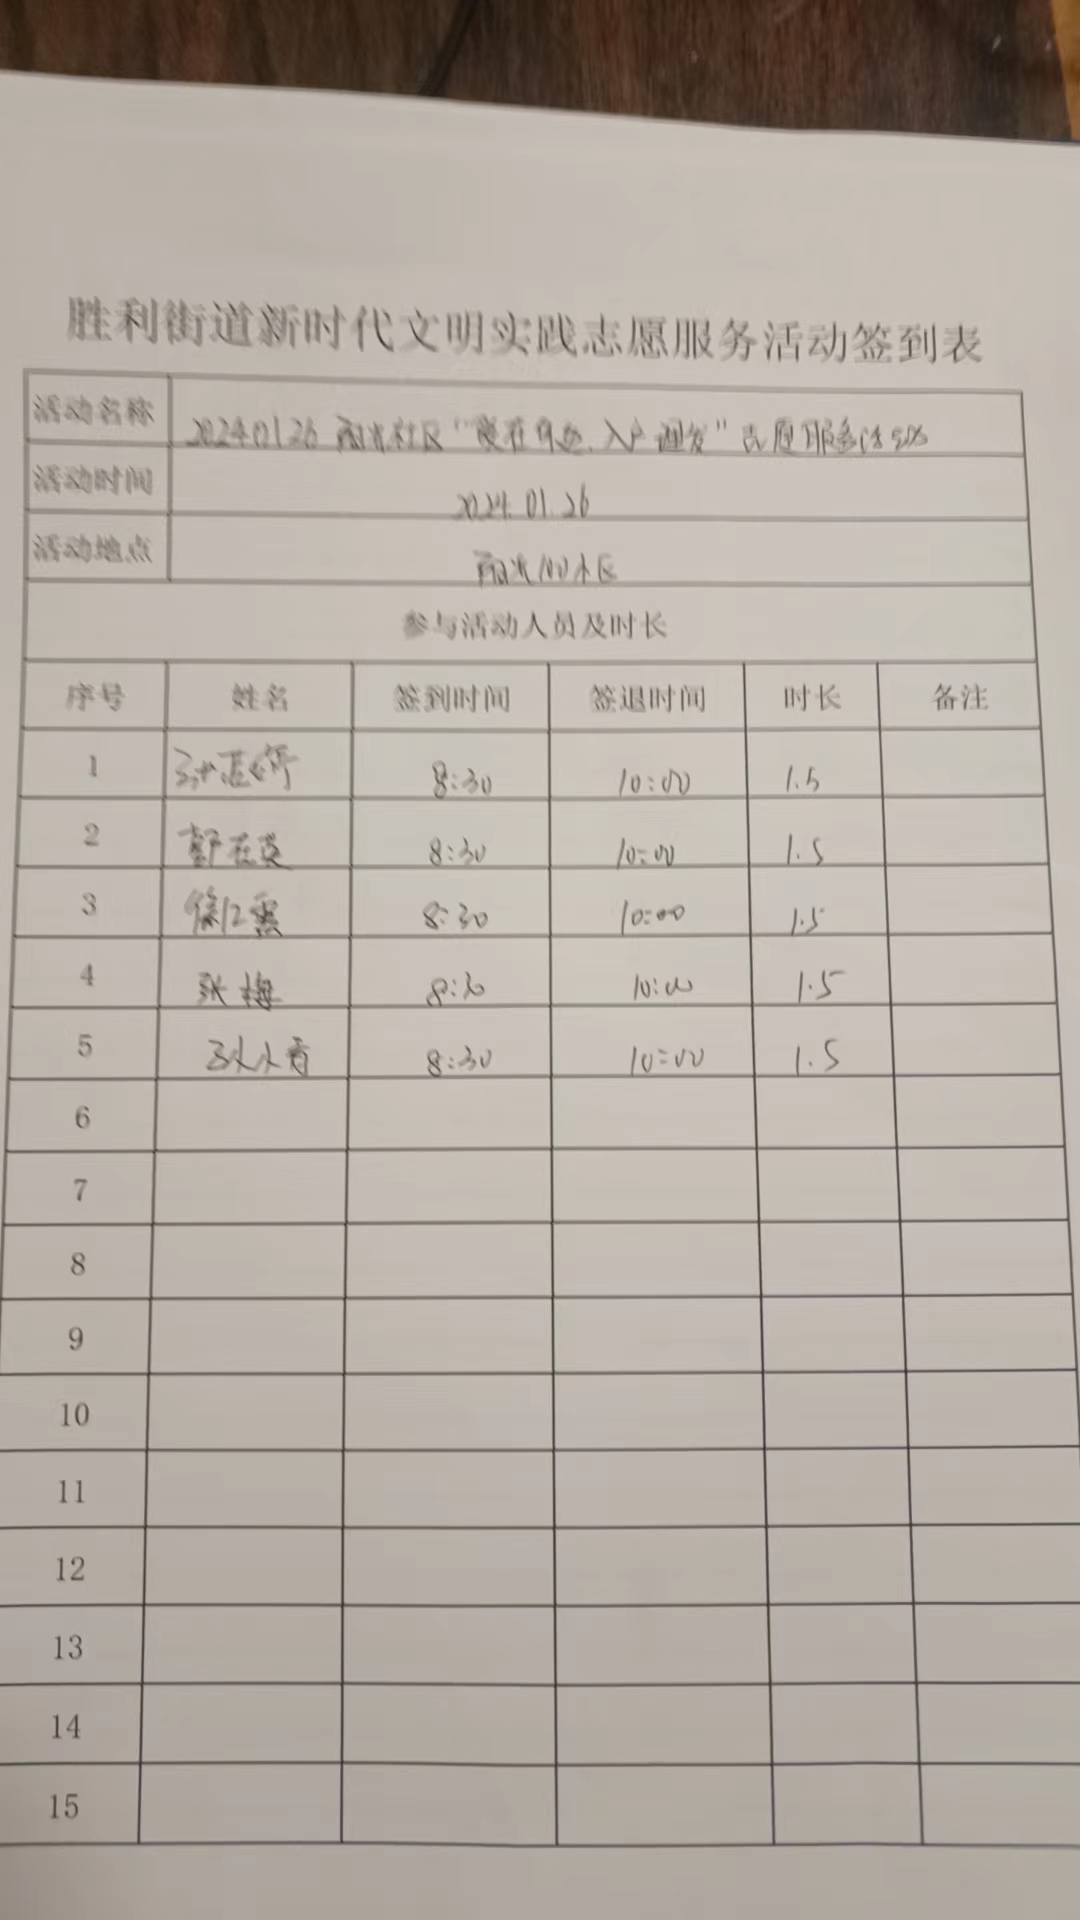 胜利街道新时代文明实践志愿服务活动签到表
活动名称 20240126 阳光社区“爱在身边、入户走访”志愿服务活动
活动时间 2024.01.26
活动地点 阳光100小区
参与活动人员及时长
序号 姓名 签到时间 签退时间 时长 备注
1 8:30 10:00 1.5
2 8:30 10:00 1.5
3 8:30 10:00 1.5
4 张梅 8:30 10:00 1.5
5 8:30 10:00 1.5
6
7
8
9
10
11
12
13
14
15